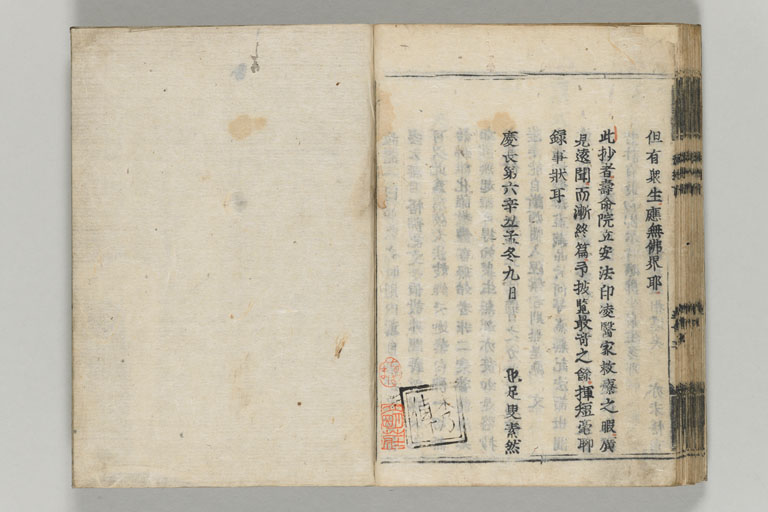 但有衆生應無佛界耶
此抄者壽命院立安法印凌醫家救療之暇廣
見遠聞而漸終篇予披覽最奇之餘揮短毫聊
録事狀耳
慶長第六辛丑孟冬九日　也足叟素然